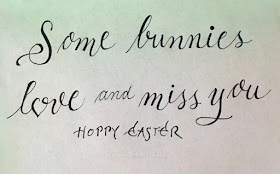 Some bunnies
love and miss you
HOPPY EASTER